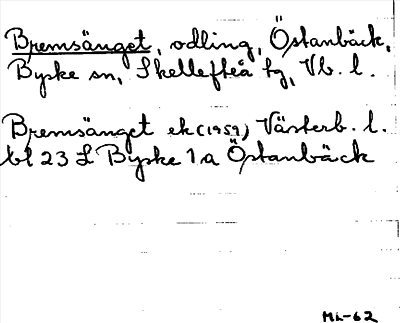 Bremsänget, odling, Östanbäck,
Byske sn, Skellefteå tg, Vb. l.
Bremsänget ek (1959) Västerb. l.
bl 23 L Byske 1 a Östanbäck
ML-62